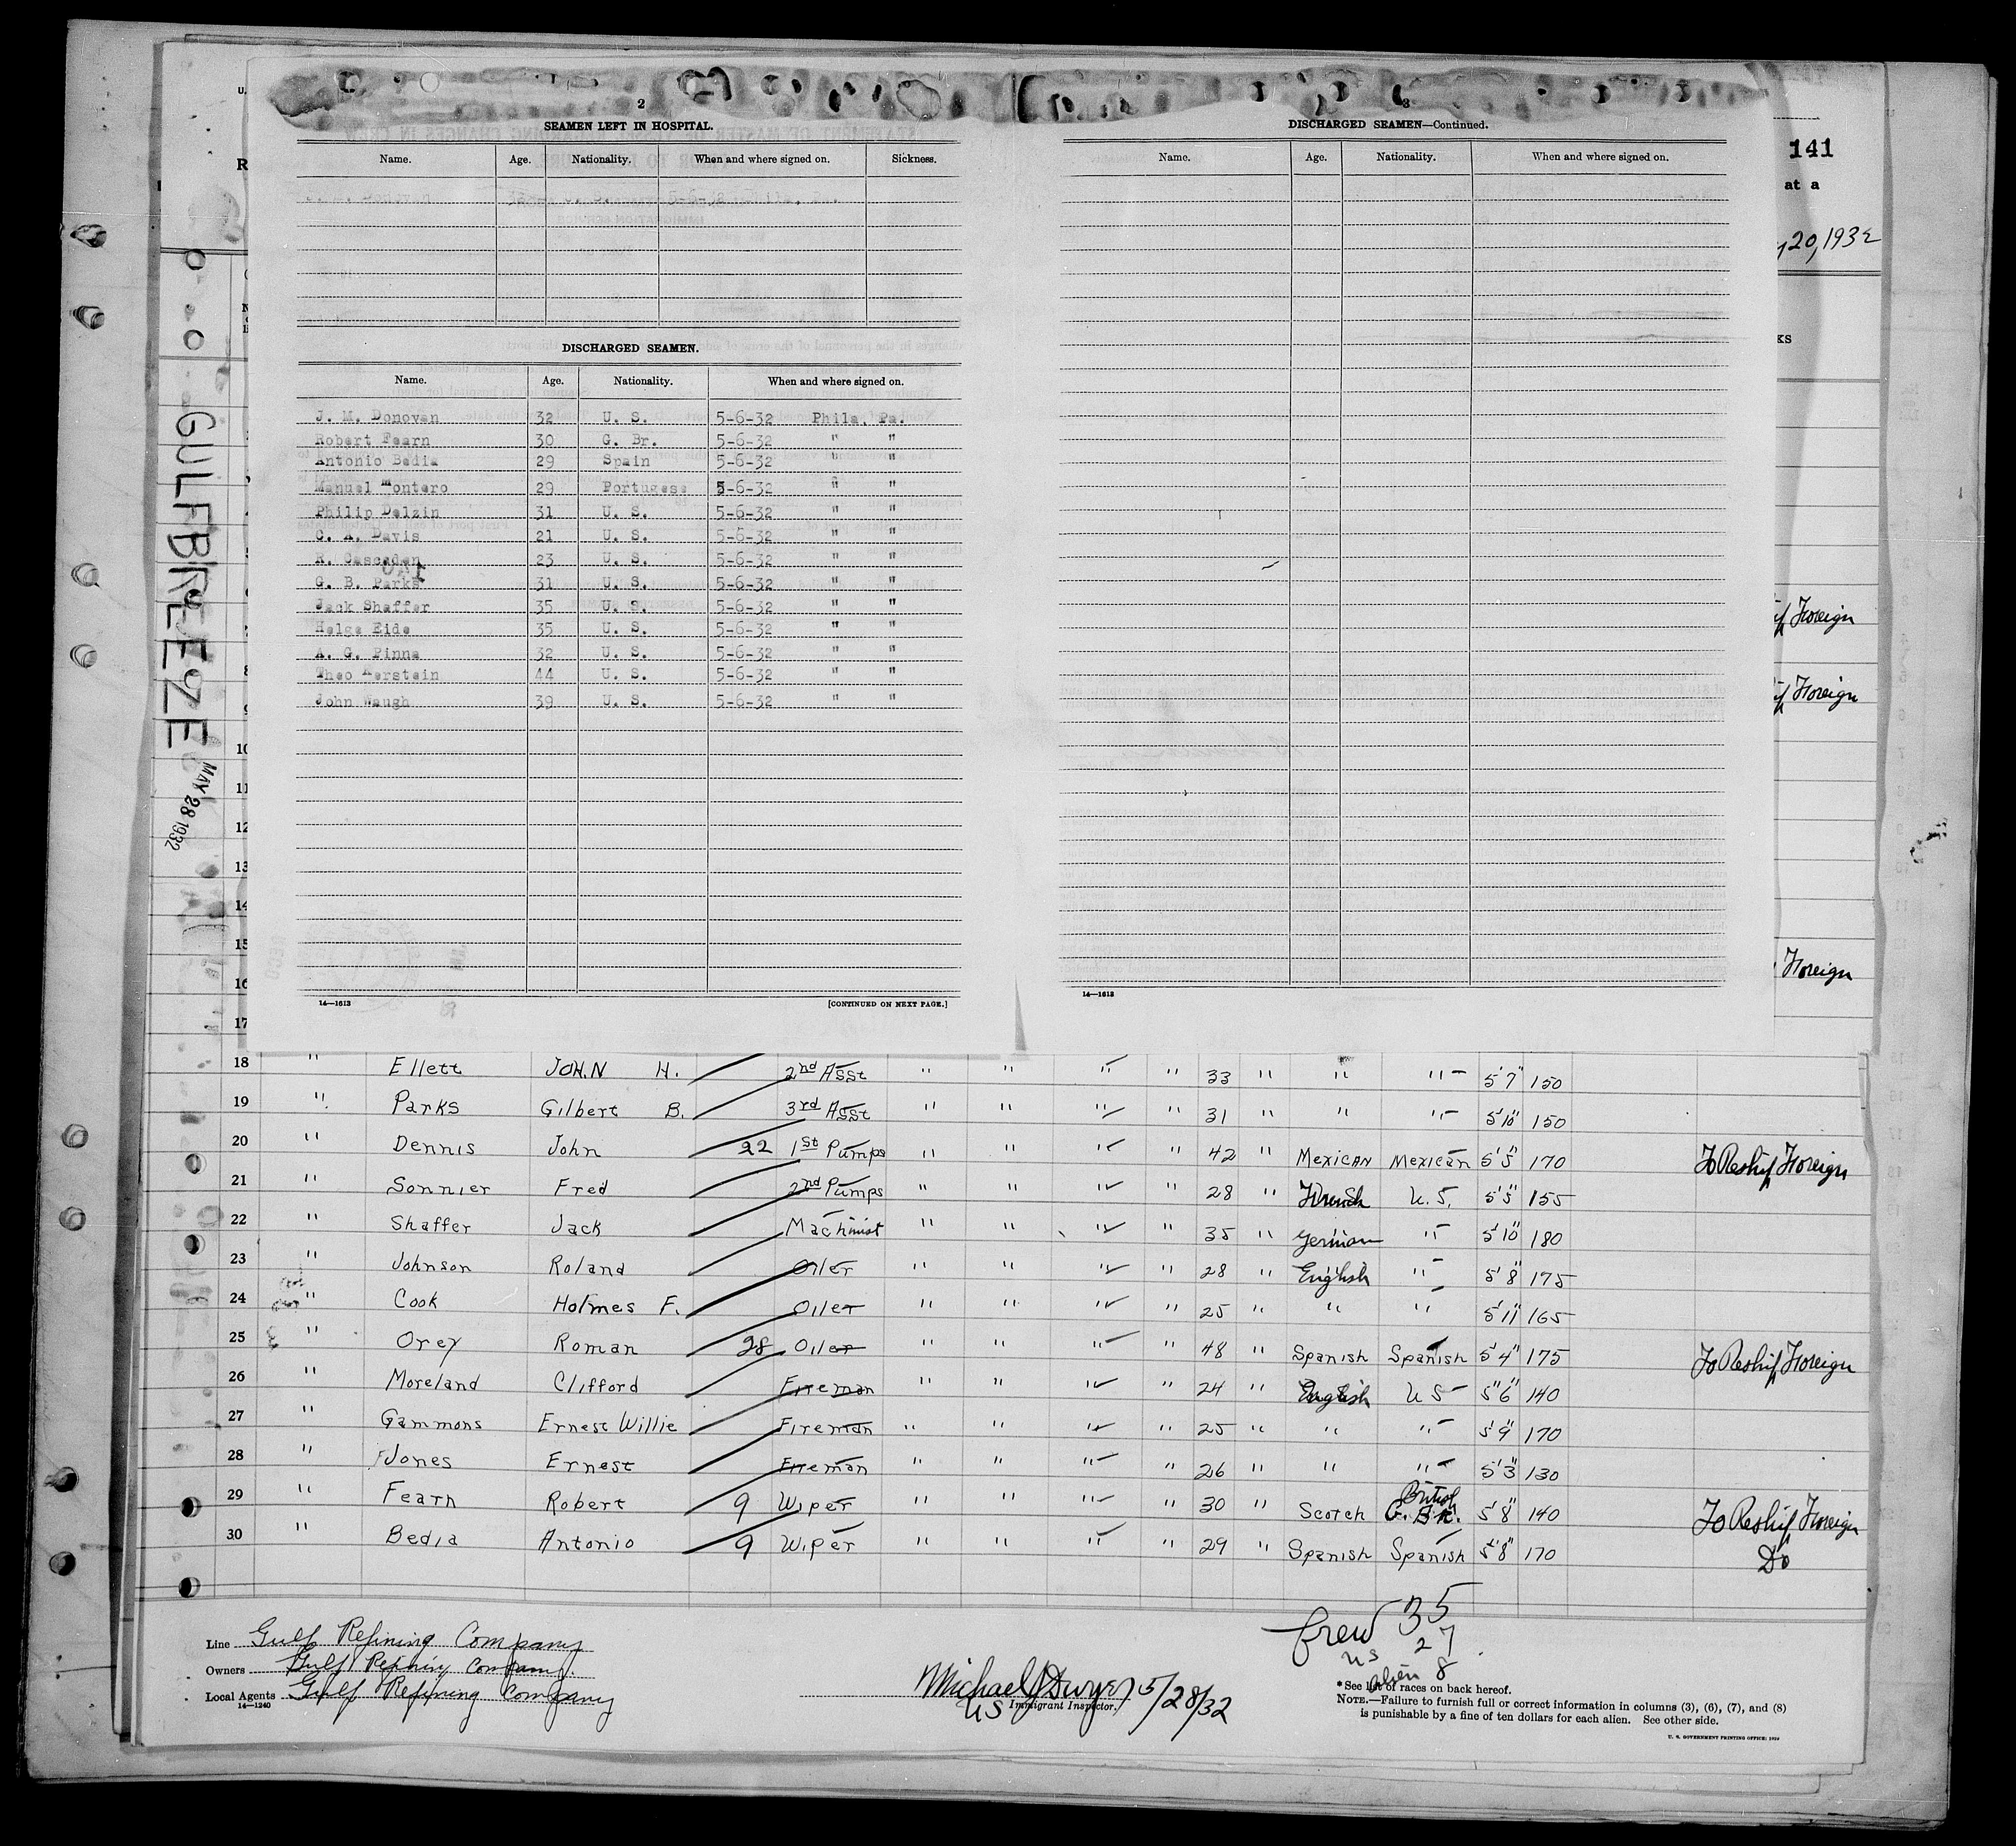 2
SEAMEN LEFT IN HOSPITAL.
Name. Age. Nationality. When and where signed on. Sickness.
DISCHARGED SEAMEN.
Name. Age. Nationality. When and where signed on.
J. M. Donovan 32 U. S. 5-6-32 Phila, Pa.
Robert Fearn 30 G. Br. 5-6-32 " "
Antonio Bedia 29 Spain 5-6-32 " "
Manuel Montero 29 Portugese 5-6-32 " "
Philip Delzin 31 U. S. 5-6-32 " "
C. A. Davis 21 U. S. 5-6-32 " "
R. Cascaden 23 U. S. 5-6-32 " "
G. B. Parks 31 U. S. 5-6-32 " "
Jack Shaffer 35 U. S. 5-6-32 " "
Helge Eide 35 U. S. 5-6-32 " "
A. G. Pinna 32 U. S. 5-6-32 " "
Theo Kerstein 44 U. S. 5-6-32 " "
John Waugh 39 U. S. 5-6-32 " "
14—1613 [CONTINUED ON NEXT PAGE.]
3
DISCHARGED SEAMEN—Continued.
Name. Age. Nationality. When and where signed on.
14—1613
141
at a
20, 1932
KS
Foreign
Foreign
Foreign
GULFBREEZE
MAY 28 1932
10
11
12
13
14
15
16
17
18 " Ellett JOHN H. 2nd Asst " " " " 33 " " " 5'7" 150
19 " Parks Gilbert B. 3rd Asst " " " " 31 " " " 5'10" 150
20 " Dennis John 22 1st Pumps " " " " 42 " Mexican Mexican 5'5" 170 To Reship Foreign
21 " Sonnier Fred 2nd Pumps " " " " 28 " French U.S. 5'5" 155
22 " Shaffer Jack Machinist " " " " 35 " German " 5'10" 180
23 " Johnson Roland Oiler " " " " 28 " English " 5'8" 175
24 " Cook Holmes F. Oiler " " " " 25 " " " 5'11" 165
25 " Orey Roman 28 Oiler " " " " 48 " Spanish Spanish 5'4" 175 To Reship Foreign
26 " Moreland Clifford Fireman " " " " 24 " English U S 5"6" 140
27 " Gammons Ernest Willie Fireman " " " " 25 " " " 5'9" 170
28 " Jones Ernest Fireman " " " " 26 " " " 5'3" 130
29 " Fearn Robert 9 Wiper " " " " 30 " Scotch British G. BR. 5'8" 140 To Reship Foreign
30 " Bedia Antonio 9 Wiper " " " " 29 " Spanish Spanish 5'8" 170 Do
Line Gulf Refining Company
Owners Gulf Refining Company.
Local Agents Gulf Refining Company
14—1240
Michael J Dwyer 5/28/32
US Immigrant Inspector.
Crew 35
US 27
Alien 8
* See list of races on back hereof.
NOTE.—Failure to furnish full or correct information in columns (3), (6), (7), and (8)
is punishable by a fine of ten dollars for each alien. See other side.
U. S. GOVERNMENT PRINTING OFFICE: 1929